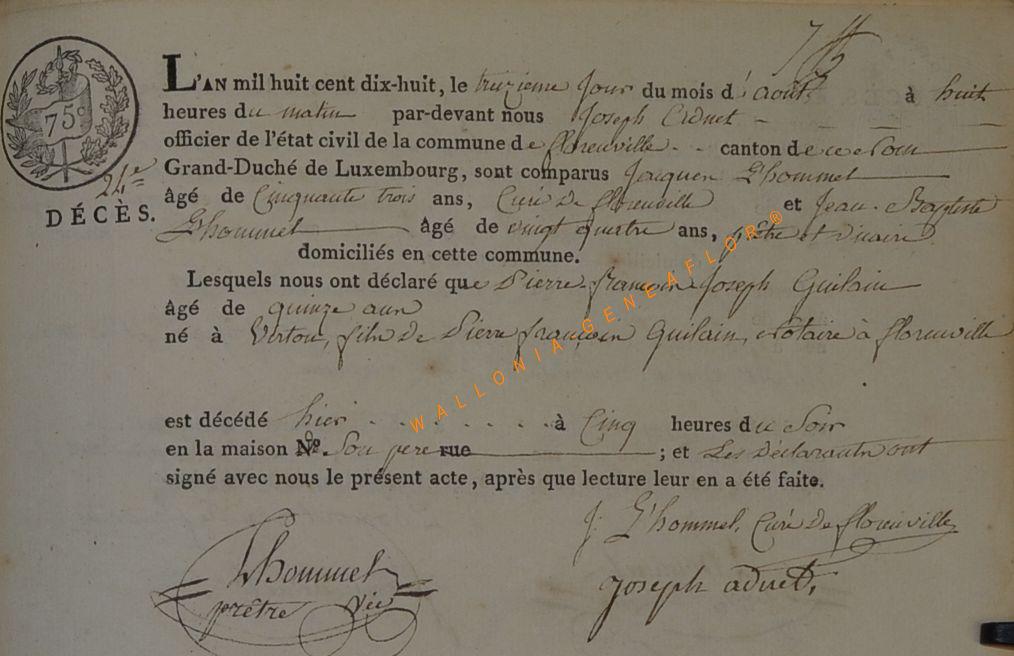 75c
24e
DÉCÈS.
L'AN mil huit cent dix-huit, le treizieme Jour du mois d'août à huit
heures du matin par-devant nous Joseph Adnet
officier de l'état civil de la commune de florenville canton de ce nom
Grand-Duché de Luxembourg, sont comparus Jacques L'hommel
âgé de Cinquante trois ans, Curé De florenville et Jean-Baptiste
L'hommel âgé de vingt quatre ans, prêtre et vicaire
domiciliés en cette commune.
Lesquels nous ont déclaré que Pierre-françois Joseph Guilain
âgé de quinze ans
né à Virton, fils De Pierre françois Guilain, Notaire à florenville
est décédé hier à Cinq heures du Soir
en la maison No. Son pere rue ; et Les Déclarants ont
signé avec nous le présent acte, après que lecture leur en a été faite.
J. L'hommel, Curé De florenville
Lhommel
prêtre Vic
joseph adnet,
WALLONIA-GENEAFLOR®